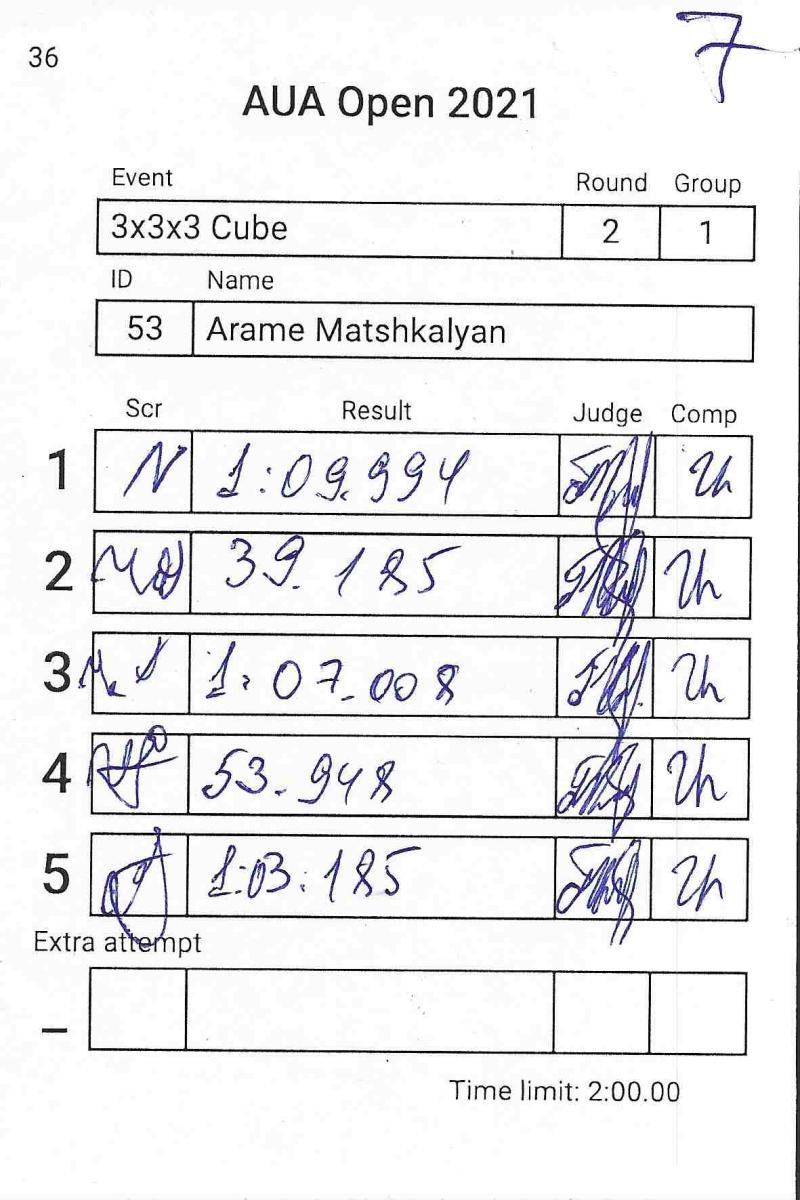 7
36
AUA Open 2021
Event Round Group
3x3x3 Cube 2 1
ID Name
53 Arame Matshkalyan
Scr Result Judge Comp
1 N 1:09.994
2 39.185
3 1:07.008
4 53.948
5 1:03.185
Extra attempt
–
Time limit: 2:00.00